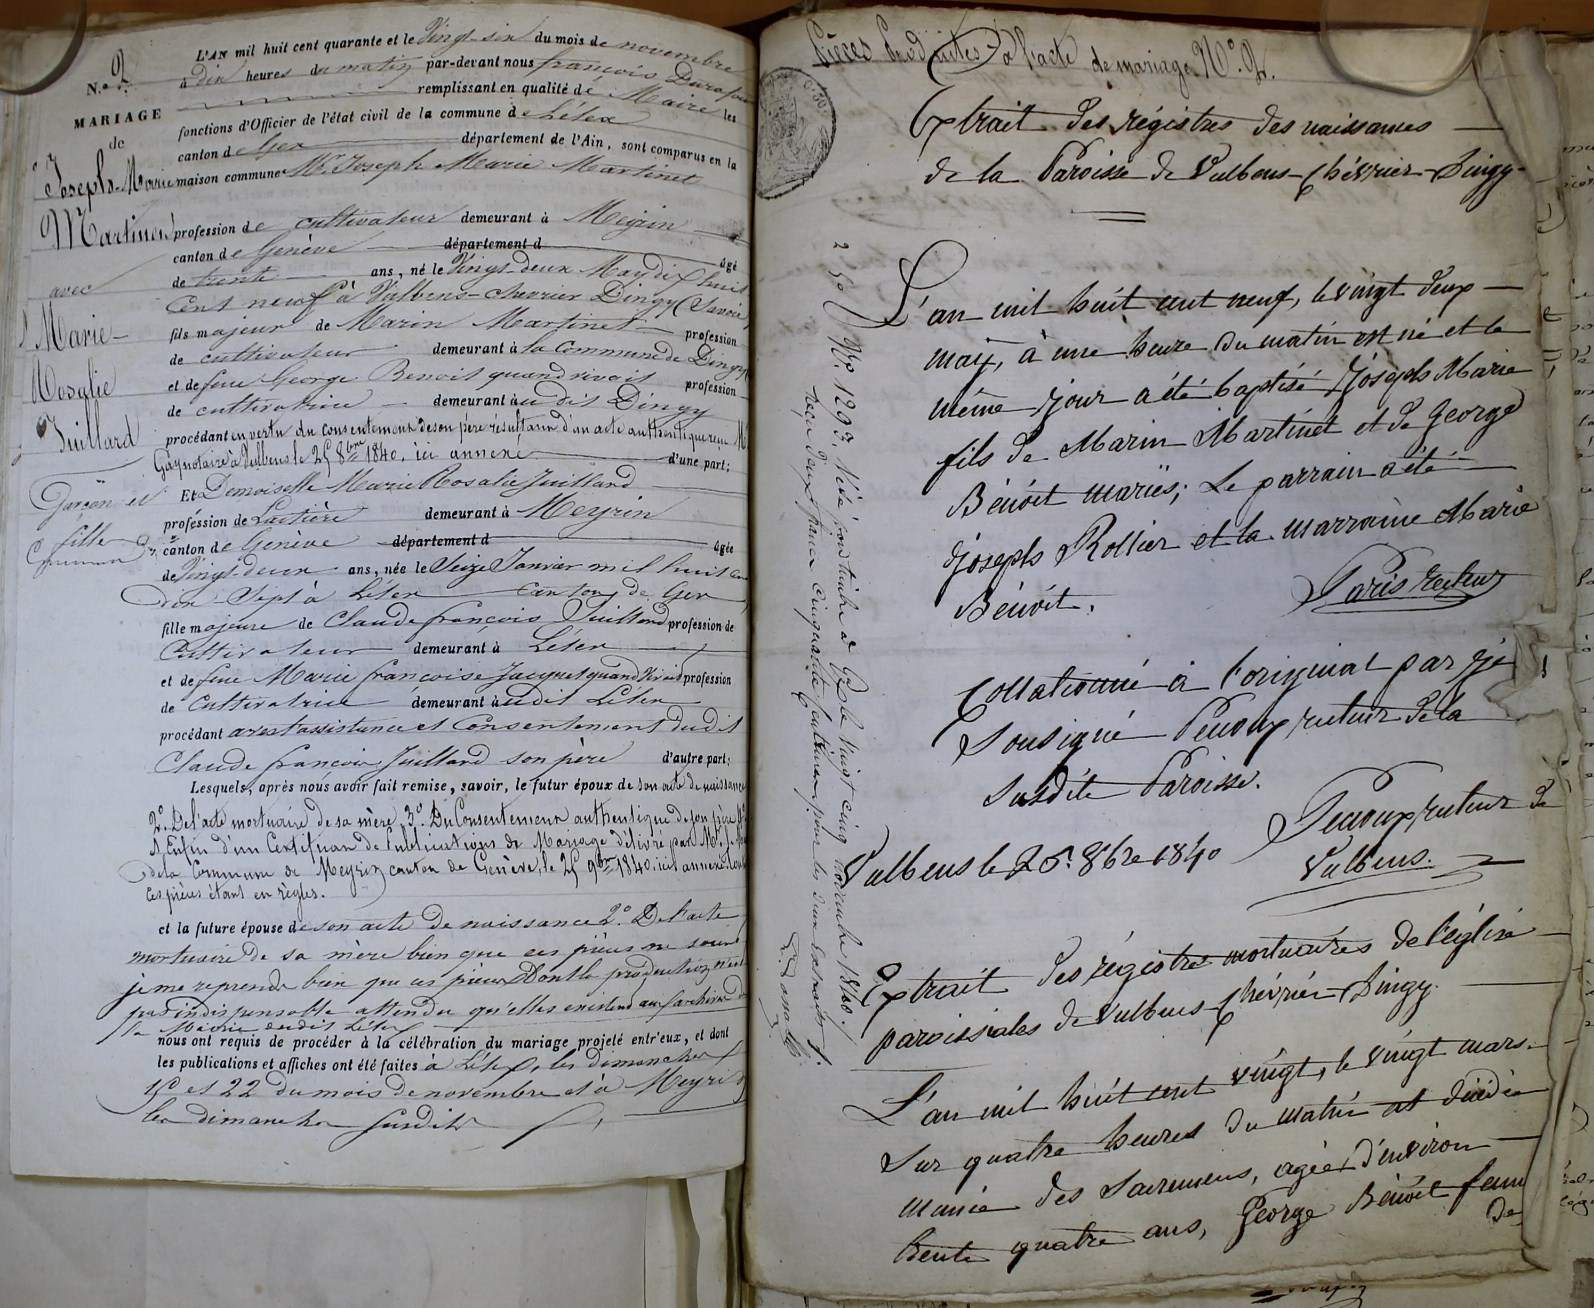 N.º 2
MARIAGE
de
Joseph-Marie
Martinet
avec
Marie-
Rosalie
Juillard
Garçon et
fille
L'AN mil huit cent quarante et le Vingt-six du mois de novembre
à dix heures du matin par-devant nous françois
remplissant en qualité de Maire les
fonctions d'Officier de l'état civil de la commune de Lélex
canton de Gex département de l'Ain, sont comparus en la
maison commune Mr. Joseph Marie Martinet
profession de cultivateur demeurant à Meyrin
canton de Genève département d
âgé
de trente ans, né le Vingt-deux May dix huit
Cent neuf à Valbens-chevrier Dingy (Savoie
fils majeur de Marin Martinet profession
de cultivateur demeurant à la Commune de Dingy
et de feue George Benoit quand vivait profession
de cultivatrice demeurant au dit Dingy
procédant en vertu du consentement de son père résultant d'un acte authentique reçu
Gay notaire à Vulbens le 25 8bre 1840. ici annexé d'une part;
Et Demoiselle Marie Rosalie Juillard
profession de Laitière demeurant à Meyrin
canton de Genève département d
âgée
de Vingt-deux ans, née le Seize Janvier mil huit cent
dix-Sept à Lélex Canton de Gex
fille majeure de Claude françois Juillard profession de
Cultivateur demeurant à Lélex
et de feue Marie françoise Jacquet quand vivait profession
de Cultivatrice demeurant audit Lélex
procédant avec l'assistance et Consentement dudit
Claude françois Juillard son père d'autre part;
Lesquels, après nous avoir fait remise, savoir, le futur époux de son acte de naissance
2.º De l'acte mortuaire de sa mère 3.º Du Consentement authentique de son père
Enfin d'un Certificat de Publications de Mariage délivré par
de la Commune de Meyrin canton de Genève, le 25 9bre 1840. ici annexé
ces pièces étant en règles.
et la future épouse de son acte de naissance 2.º De l'acte
mortuaire de sa mère bien que ces pièces ne soient
je me reprends bien que ces pièces Dont la production n'est
pas indispensable attendu qu'elles existent aux archives de
la Mairie dudit Lélex
nous ont requis de procéder à la célébration du mariage projeté entr'eux, et dont
les publications et affiches ont été faites à Lélex, les dimanches
15 et 22 du mois de novembre et à Meyrin
les dimanches susdits
Pièces Produites à l'acte de mariage N.º 2.
Extrait des régistres des naissances
de la Paroisse de Vulbens-Chévrier-Dingy
L'an mil huit cent neuf, le vingt deux
may, à une heure du matin est né et le
même jour a été baptisé Joseph Marie
fils de Marin Martinet et de George
Bénoit mariés; Le parrain a été
Joseph Rollier et la marraine Marie
Bénoit.
Paris recteur
Collationné à l'original par je
Sousigné Pecoux recteur de la
susdite Paroisse.
Vulbens le 25. 8bre 1840
Pecoux recteur de
Vulbens.
Extrait des régistres mortuaires de l'église
paroissiales de Vulbens-Chévrier-Dingy.
L'an mil huit cent vingt, le vingt mars
sur quatre heures du matin est décédée
munie des Sacremens, agée d'environ
trente quatre ans, George Bénoit femme
de
N. 1293. Visé pour timbre à Gex le vingt cinq novembre 1840.
reçu deux francs cinquante centimes pour les deux extraits